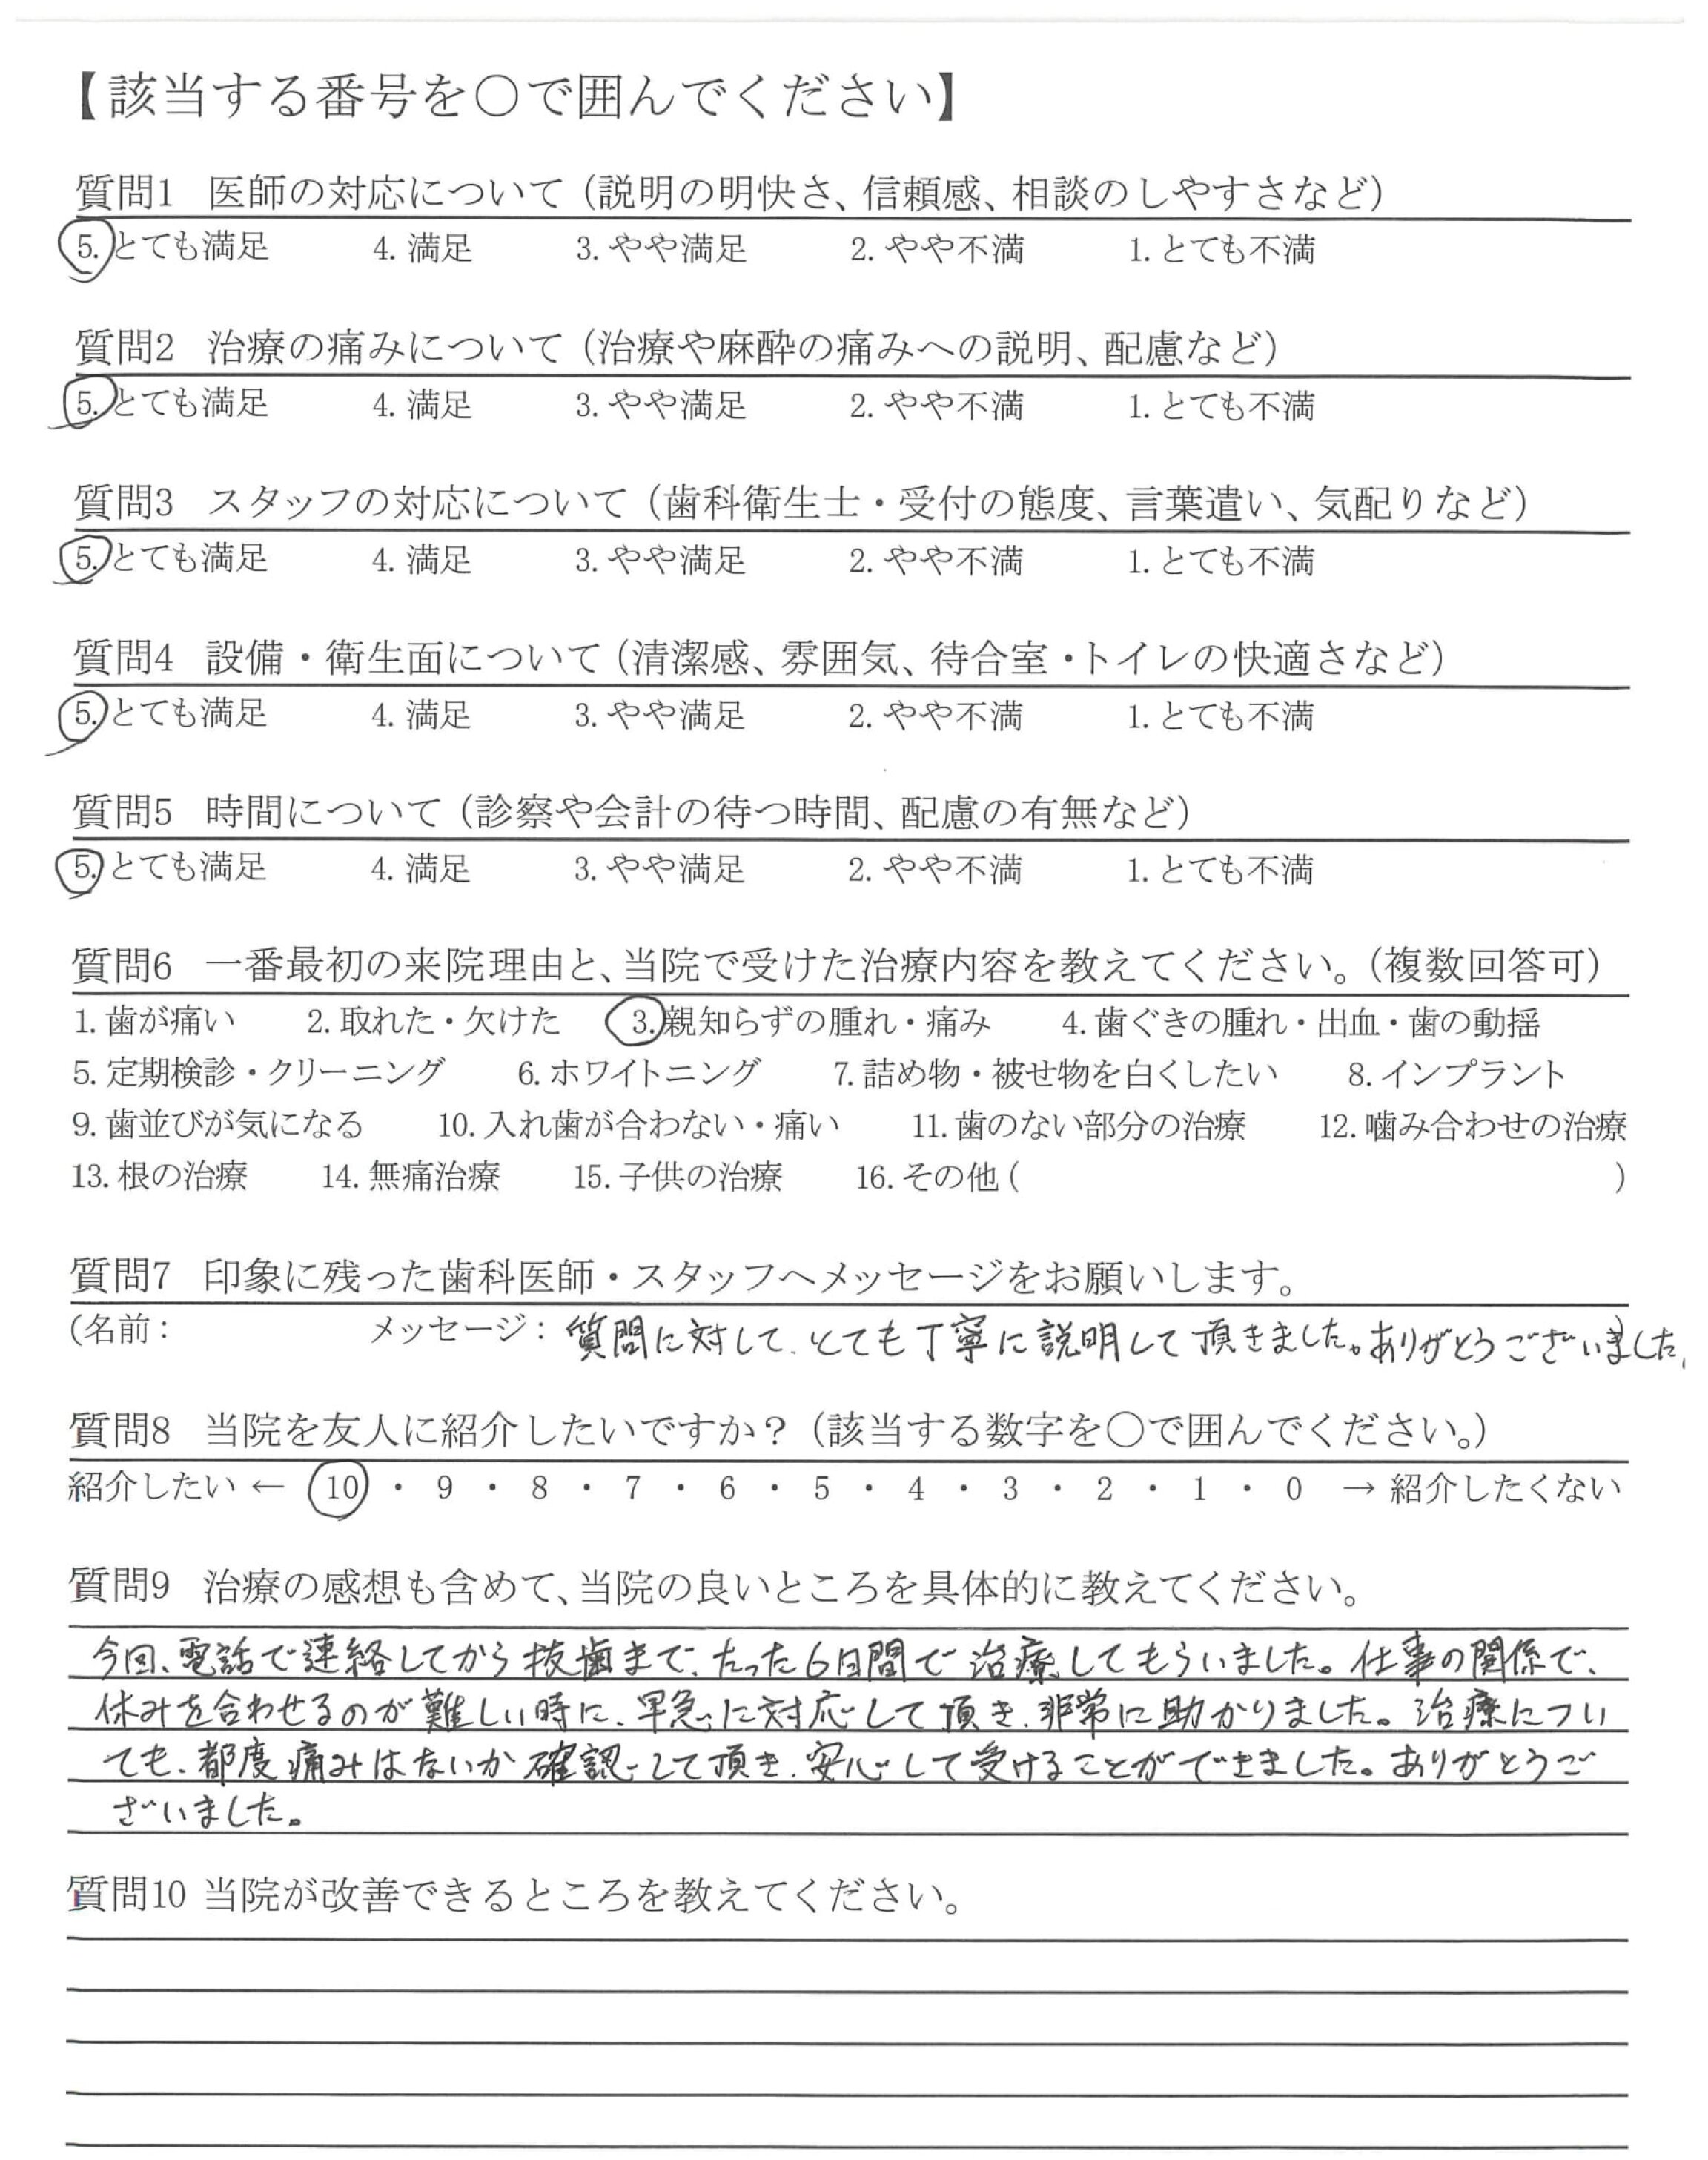 【該当する番号を〇で囲んでください】
質問1 医師の対応について（説明の明快さ、信頼感、相談のしやすさなど）
5. とても満足 4. 満足 3. やや満足 2. やや不満 1. とても不満
質問2 治療の痛みについて（治療や麻酔の痛みへの説明、配慮など）
5. とても満足 4. 満足 3. やや満足 2. やや不満 1. とても不満
質問3 スタッフの対応について（歯科衛生士・受付の態度、言葉遣い、気配りなど）
5. とても満足 4. 満足 3. やや満足 2. やや不満 1. とても不満
質問4 設備・衛生面について（清潔感、雰囲気、待合室・トイレの快適さなど）
5. とても満足 4. 満足 3. やや満足 2. やや不満 1. とても不満
質問5 時間について（診察や会計の待つ時間、配慮の有無など）
5. とても満足 4. 満足 3. やや満足 2. やや不満 1. とても不満
質問6 一番最初の来院理由と、当院で受けた治療内容を教えてください。（複数回答可）
1. 歯が痛い 2. 取れた・欠けた 3. 親知らずの腫れ・痛み 4. 歯ぐきの腫れ・出血・歯の動揺
5. 定期検診・クリーニング 6. ホワイトニング 7. 詰め物・被せ物を白くしたい 8. インプラント
9. 歯並びが気になる 10. 入れ歯が合わない・痛い 11. 歯のない部分の治療 12. 噛み合わせの治療
13. 根の治療 14. 無痛治療 15. 子供の治療 16. その他（ ）
質問7 印象に残った歯科医師・スタッフへメッセージをお願いします。
（名前： メッセージ：質問に対して、とても丁寧に説明して頂きました。ありがとうございました。）
質問8 当院を友人に紹介したいですか？（該当する数字を〇で囲んでください。）
紹介したい ← 10 ・ 9 ・ 8 ・ 7 ・ 6 ・ 5 ・ 4 ・ 3 ・ 2 ・ 1 ・ 0 → 紹介したくない
質問9 治療の感想も含めて、当院の良いところを具体的に教えてください。
今回、電話で連絡してから抜歯まで、たった6日間で治療してもらいました。仕事の関係で、
休みを合わせるのが難しい時に、早急に対応して頂き、非常に助かりました。治療につい
ても、都度痛みはないか確認して頂き、安心して受けることができました。ありがとうご
ざいました。
質問10 当院が改善できるところを教えてください。